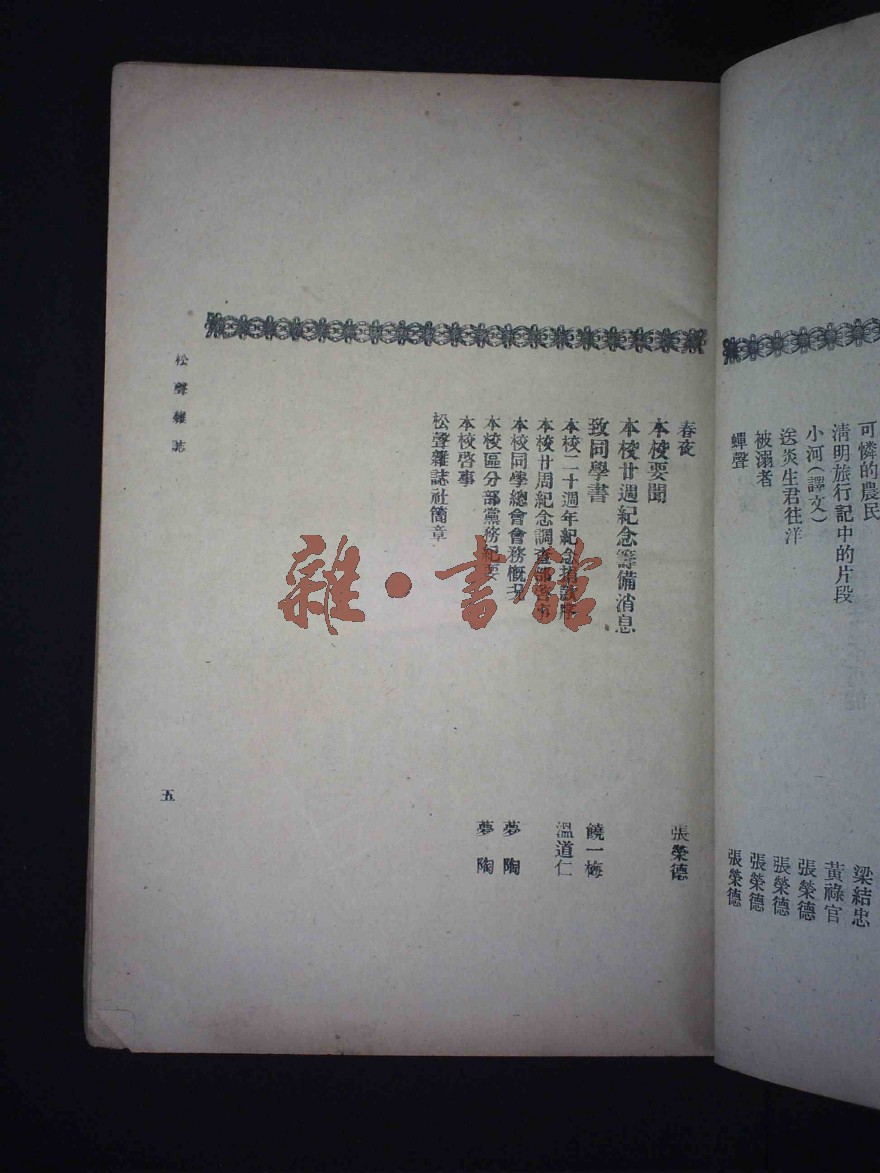 可憐的農民
梁結忠
清明旅行記中的片段
黃祿官
小河(譯文)
張榮德
送炎生君往洋
張榮德
被溺者
張榮德
蟬聲
張榮德
春夜
張榮德
本校要聞
本校廿週紀念籌備消息
致同學書
饒一梅
本校二十週年紀念捐啟
溫道仁
本校廿周紀念調查部啓事
本校同學總會會務概況
夢陶
本校區分部黨務紀要
夢陶
本校啓事
松聲雜誌社簡章
松聲雜誌
五
雜·書館